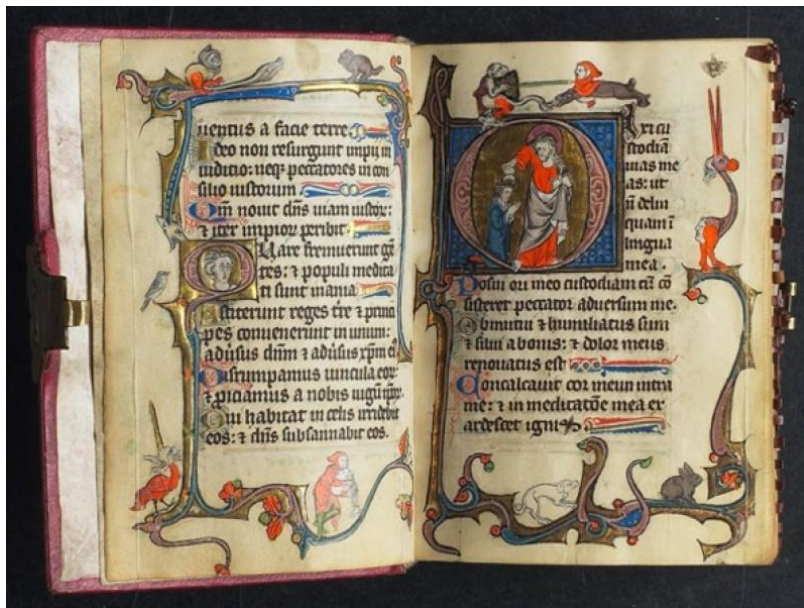 uentus a facie terre
Ideo non resurgunt impij in
iuditio: neqȝ peccatores in con
silio iustorum
Qm̄ nouit dn̄s uiam iustoꝝ:
⁊ iter impioꝝ peribit
Quare fremuerunt gē
tes: ⁊ populi medita
ti sunt inania
Astiterunt reges tr̄e ⁊ princi
pes conuenerunt in unum:
adūsus dn̄m ⁊ adūsus xp̄m ei
Disrumpamus uincula eoꝝ
⁊ ꝓiciamus a nobis iugū ip̄oꝝ
Qui habitat in celis irridebit
eos: ⁊ dn̄s subsannabit eos.
Dixi cu
stodiā
uias me
as: ut
n̄ delin
quam ī
lingua
mea.
Posui ori meo custodiam cū cō
sisteret peccator aduersum me.
Obmutui ⁊ humiliatus sum
⁊ silui a bonis: ⁊ dolor meus
renouatus est
Concalcauit cor meum intra
me: ⁊ in meditatōe mea ex
ardescet ignis